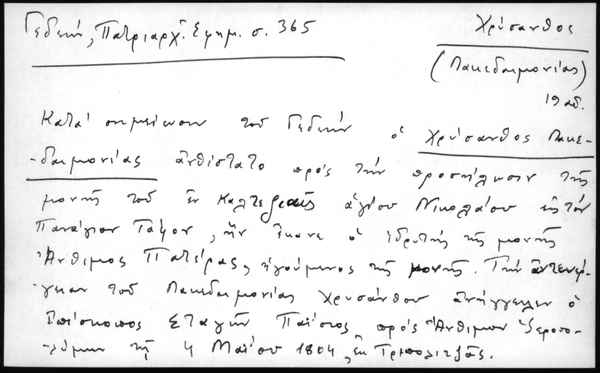 Γεδεών, Πατριαρχ. Εφημ. σ. 365
Χρύσανθος
(Λακεδαιμονίας)
19 αἰ.
Κατά σημείωσιν τοῦ Γεδεών ὁ Χρύσανθος Λακε-
-δαιμονίας ἀνθίστατο πρός τήν προσήλωσιν τῆς
μονῆς τοῦ ἐν Καλτεζιαῖς ἁγίου Νικολάου εἰς τόν
Πανάγιον Τάφον, ἥν ἔκανε ὁ ἱδρυτής τῆς μονῆς
Ἄνθιμος Πατέρας, ἡγούμενος τῆς μονῆς. Τήν ἀντενέρ-
γειαν τοῦ Λακεδαιμονίας Χρυσάνθου ἀνήγγειλεν ὁ
Ἐπίσκοπος Σταγῶν Παΐσιος πρός Ἄνθιμον Ἱεροσο-
-λύμων τῇ 4 Μαΐου 1804, ἐκ Τριπολιτζᾶς.